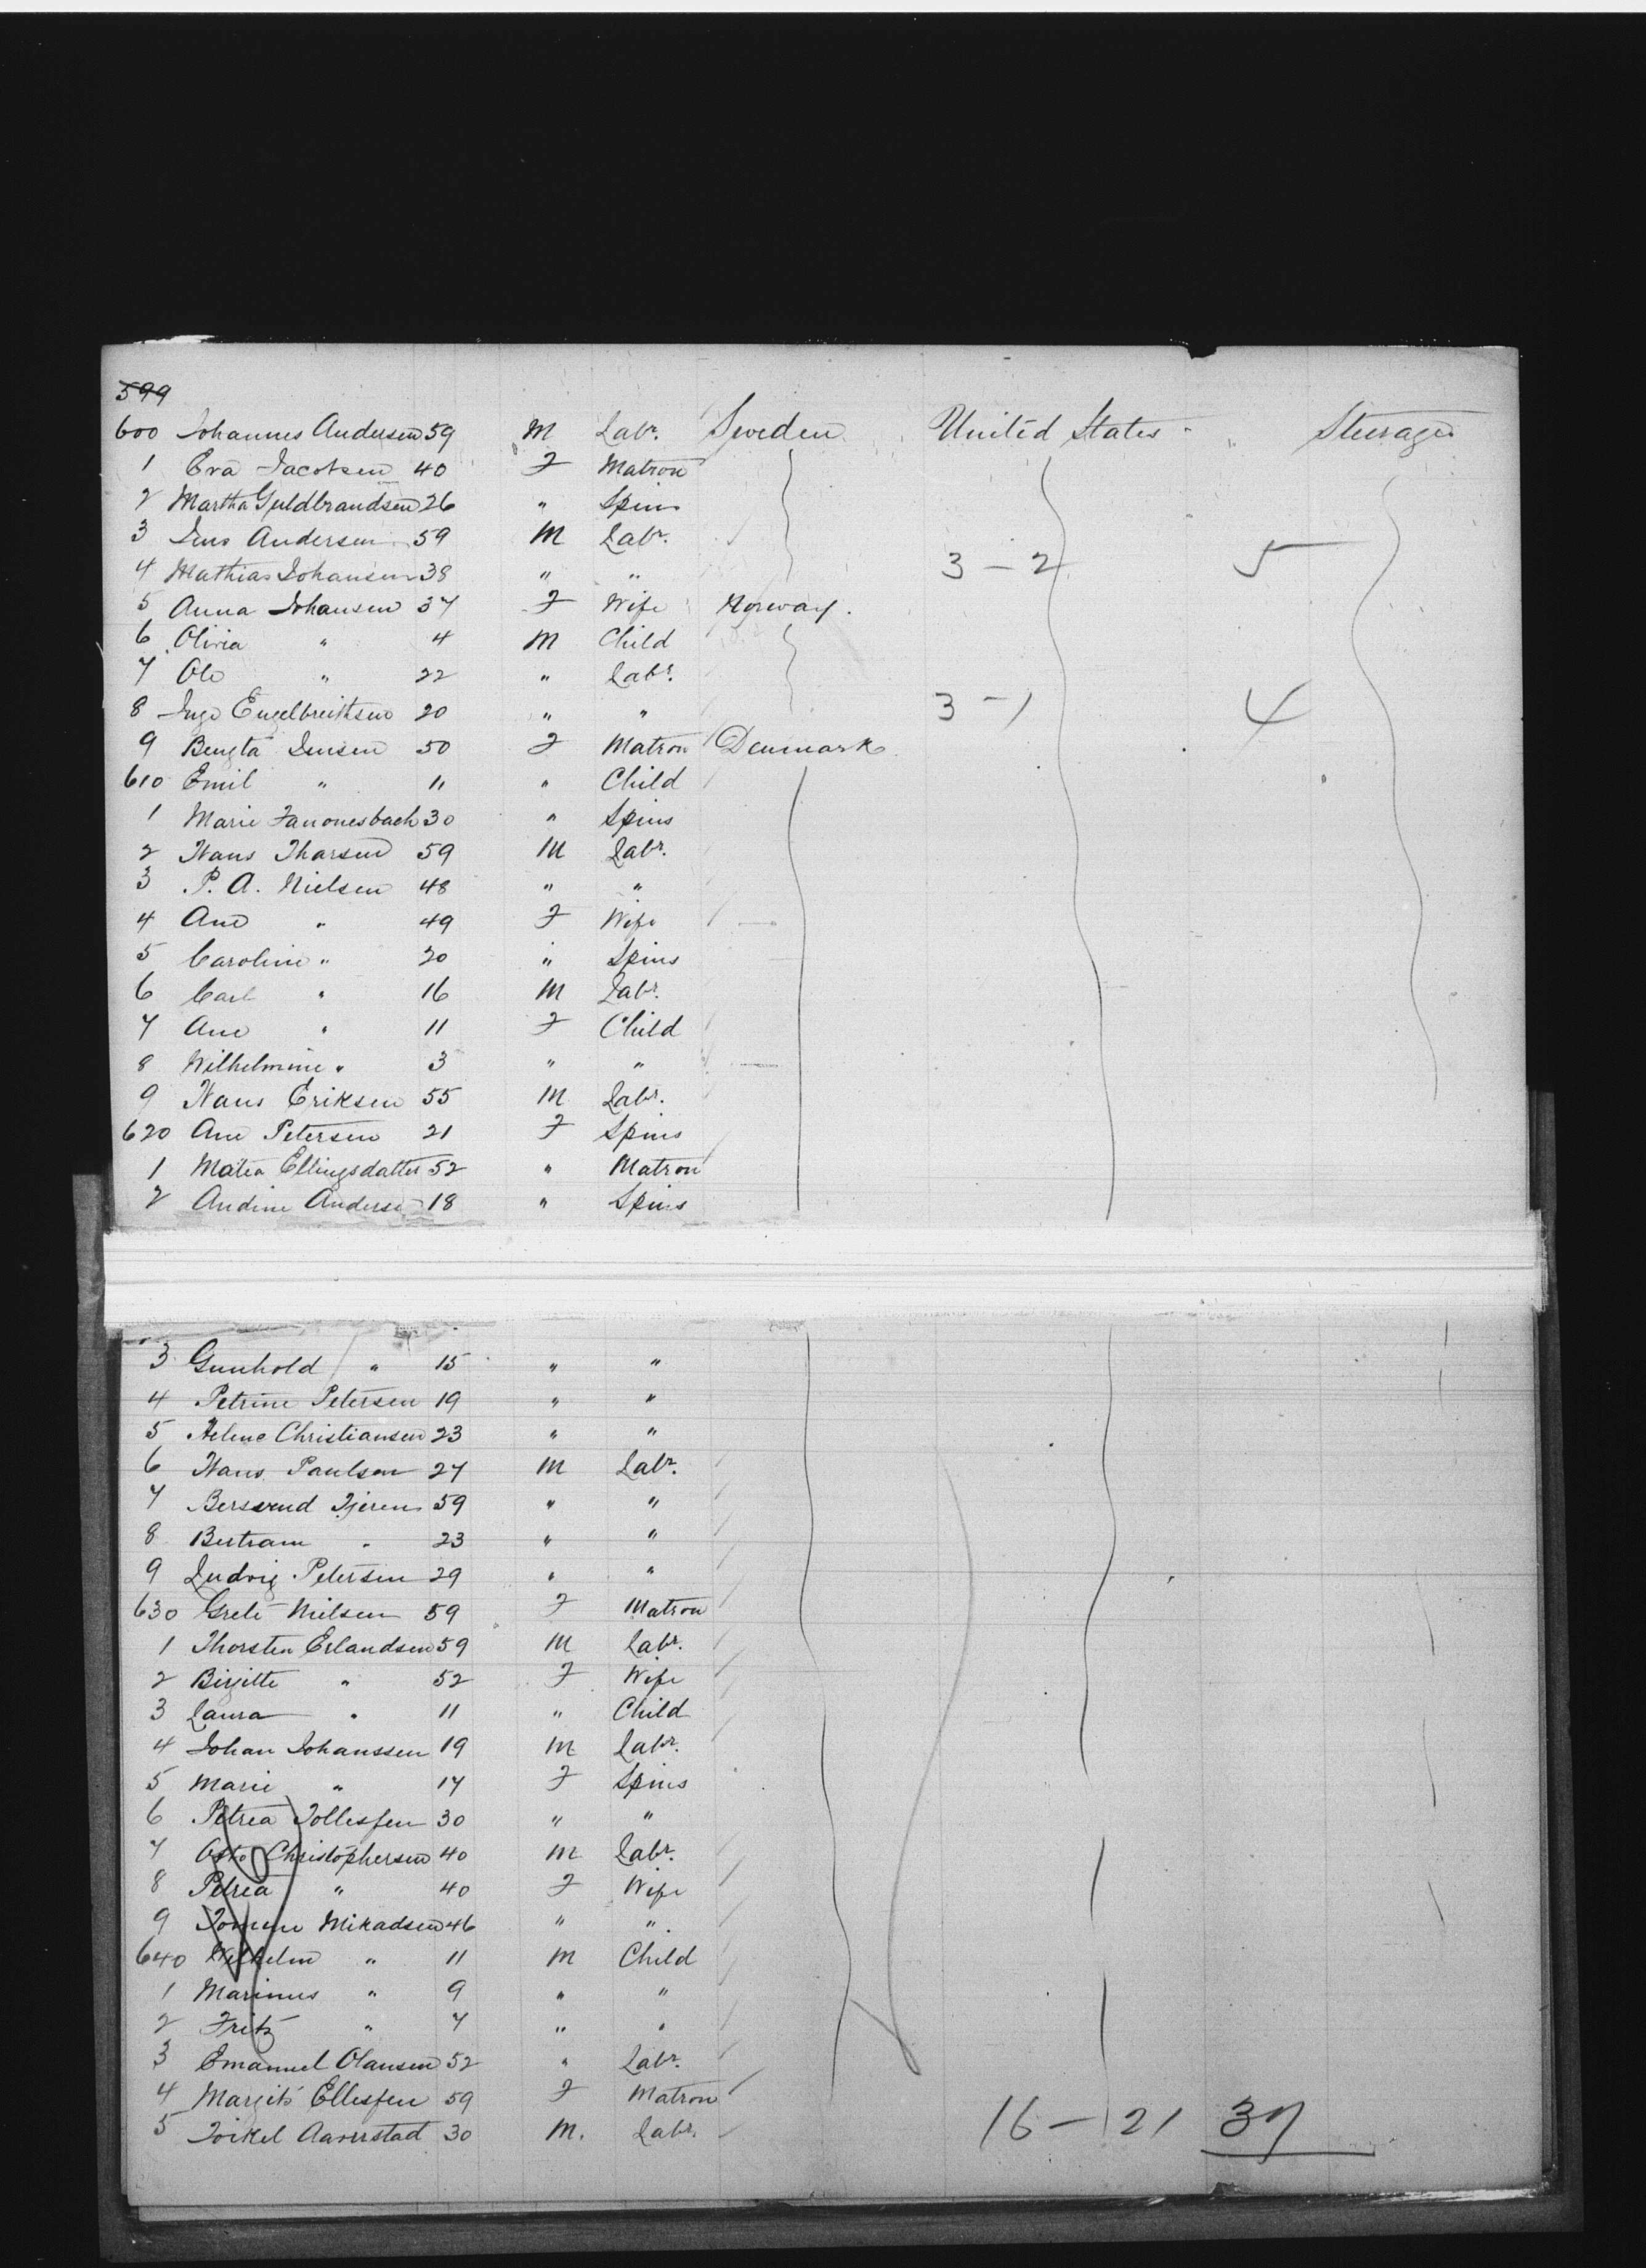 599
600 Johannes Andersen 59 M Labr. Sweden United States " Steerage
1 Eva Jacobsen 40 F Matron
2 Martha Guldbrandsen 26 " Spins
3 Jens Andersen 59 M Labr.
4 Mathias Johansen 38 " " 3 - 2 5
5 Anna Johansen 37 F Wife Norway.
6 Olivia " 4 M Child
7 Ole " 22 " Labr.
8 Inge Engelbreithsen 20 " " 3 - 1 4
9 Bengta Jensen 50 F Matron Denmark
610 Emil " 11 " Child
1 Marie Fanonesbach 30 " Spins
2 Hans Tharsen 59 M Labr.
3 P. A. Nielsen 48 " "
4 Ane " 49 F Wife
5 Caroline " 20 " Spins
6 Carl " 16 M Labr.
7 Ane " 11 F Child
8 Wilhelmine " 3 " "
9 Hans Eriksen 55 M Labr.
620 Ane Petersen 21 F Spins
1 Matea Ellingsdatter 52 " Matron
2 Andine Anderse 18 " Spins
3 Gunhold " 15 " "
4 Petrine Petersen 19 " "
5 Helene Christiansen 23 " "
6 Hans Paulsen 27 M Labr.
7 59 " "
8 Bertram " 23 " "
9 Ludvig Petersen 29 " "
630 Grete Nielsen 59 F Matron
1 Thorsten Erlandsen 59 M Labr.
2 Birgitte " 52 F Wife
3 Laura " 11 " Child
4 Johan Johanssen 19 M Labr.
5 Marie " 17 F Spins
6 Petrea Tollesfen 30 " "
7 Christophersen 40 M Labr.
8 Petrea " 40 F Wife
9 Mikadsen 46 " "
640 Wilhelm " 11 M Child
1 Marinus " 9 " "
2 Fritz " 7 " "
3 Emanuel Olausen 52 " Labr.
4 Margit Ellesfen 59 F Matron
5 Torkel Aaverstad 30 M. Labr. 16 - 21 37